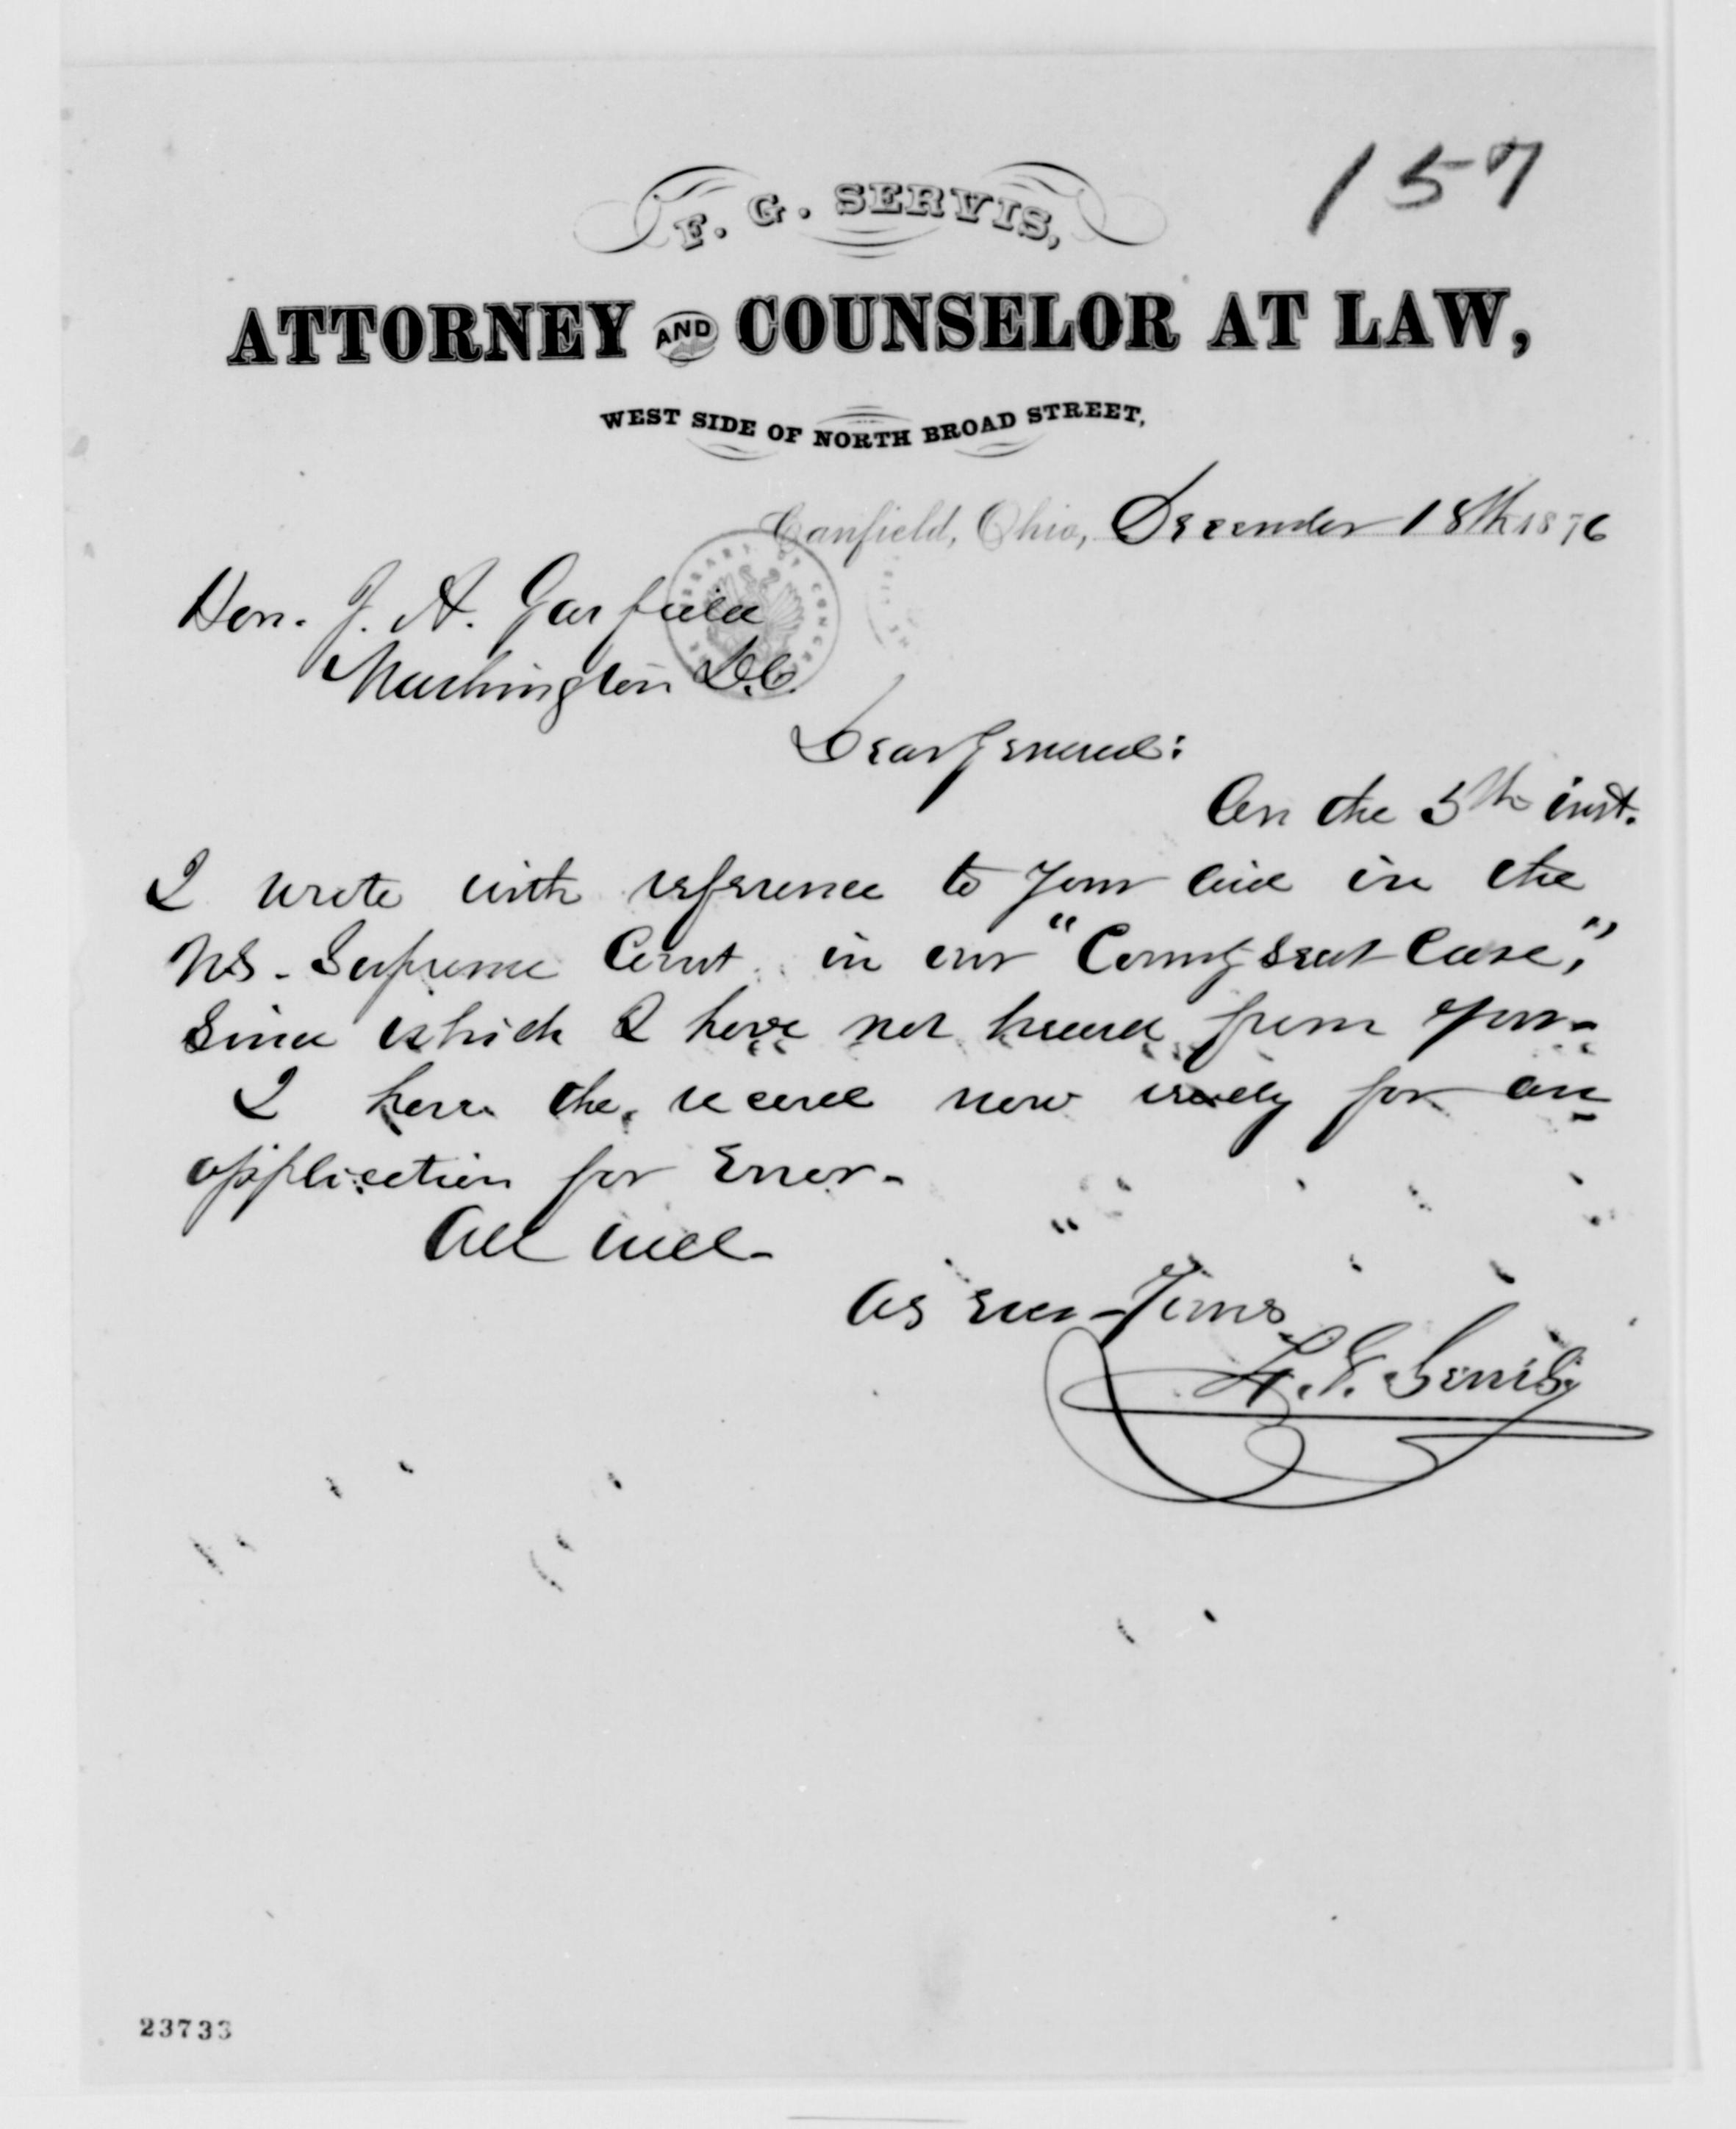 157
F. G. SERVIS,
ATTORNEY AND COUNSELOR AT LAW,
WEST SIDE OF NORTH BROAD STREET,
Canfield, Ohio, December 18th 1876
Hon. J. A. Garfield
Washington D.C.
Dear General:
On the 5th inst.
I wrote with reference to your aid in the
U.S. Supreme Court in our "County Seat Case,"
Since which I have not heard from you-
I have the record now ready for an
application for Error-
All well-
As ever-Yours
F. G. Servis
23733